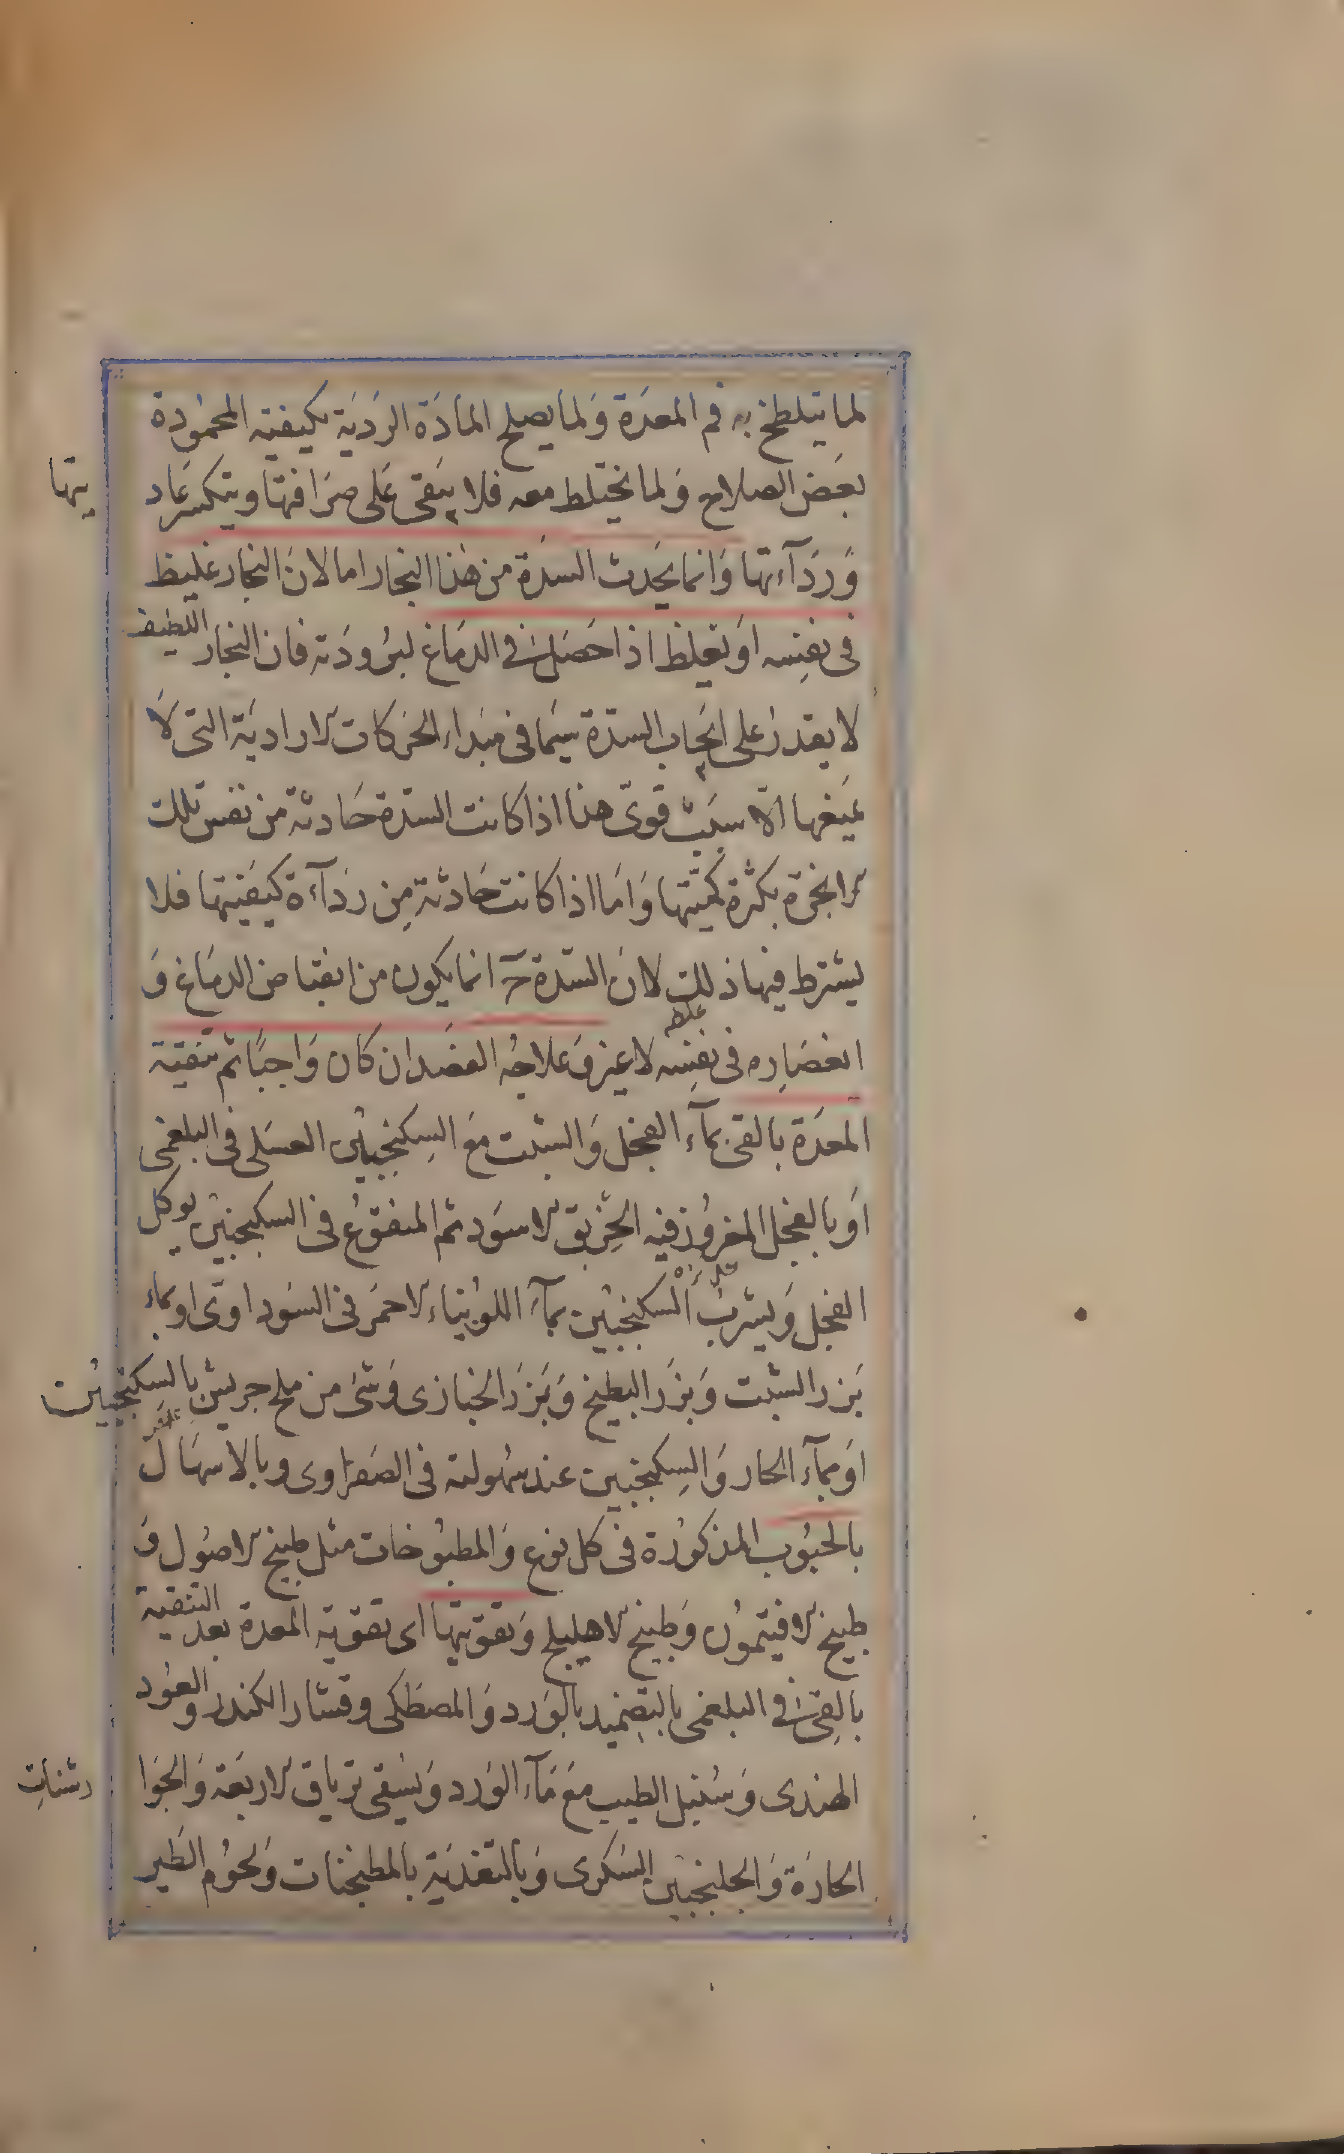 لما يتلطخ به فم المعدة ولما يصلح المادة الردية بكيفيته المحمودة
بعض الصلاح ولما يختلط معه فلا يبقى على صرافتها ويتكسر عاد
يتها
ورداءتها وانما يحدث السدة من هذا البخار اما لان البخار غليظ
فى نفسه او يغلظ اذا حصل فى الدماغ لبرودته فان البخار اللطيف
لا يقدر على ايجاب السدة سيما فى مبداء الحركات الارادية التى لا
يمنعها الا سبب قوى هذا اذا كانت السدة حادثة من نفس تلك
الابخرة بكثرة كميتها واما اذا كانت حادثة من رداءة كيفيتها فلا
يشترط فيها ذلك لان السدة ح انما يكون من انقباض الدماغ و
انعصاره فى نفسه لا غير وعلاجه الفصد ان كان واجبا ثم تنقية
المعدة بالقى بماء الفجل والشبت مع السكنجبين العسلى فى البلغمى
او بالفجل المغروز فيه الخربق الاسود ثم المنقوع فى السكنجبين يوكل
الفجل ويشرب السكنجبين بماء اللوبياء الاحمر فى السوداوى او بماء
بزر الشبت وبزر البطيخ وبزر الخبازى وشئ من ملح جريش بالسكنجبين
او بماء الحار والسكنجبين عند سهولته فى الصفراوى وبالاسهال
بالحبوب المذكورة فى كل نوع والمطبوخات مثل طبيخ الاصول و
طبيخ الافيتمون وطبيخ الاهليلج وتقويتها اى تقوية المعدة بعد التنقية
بالقى فى البلغمى بالتضميد بالورد والمصطكى وقشار الكندر والعود
الهندى وسنبل الطيب مع ماء الورد ويسقى ترياق الاربعة والجوا
رشنات
الحارة والجلنجبين السكرى وبالتغذية بالمطجنات ولحوم الطير